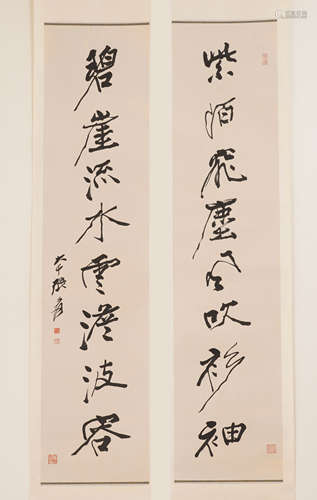 紫陌飛塵風吹衫袖
碧崖流水雲澹波容
大千張爰